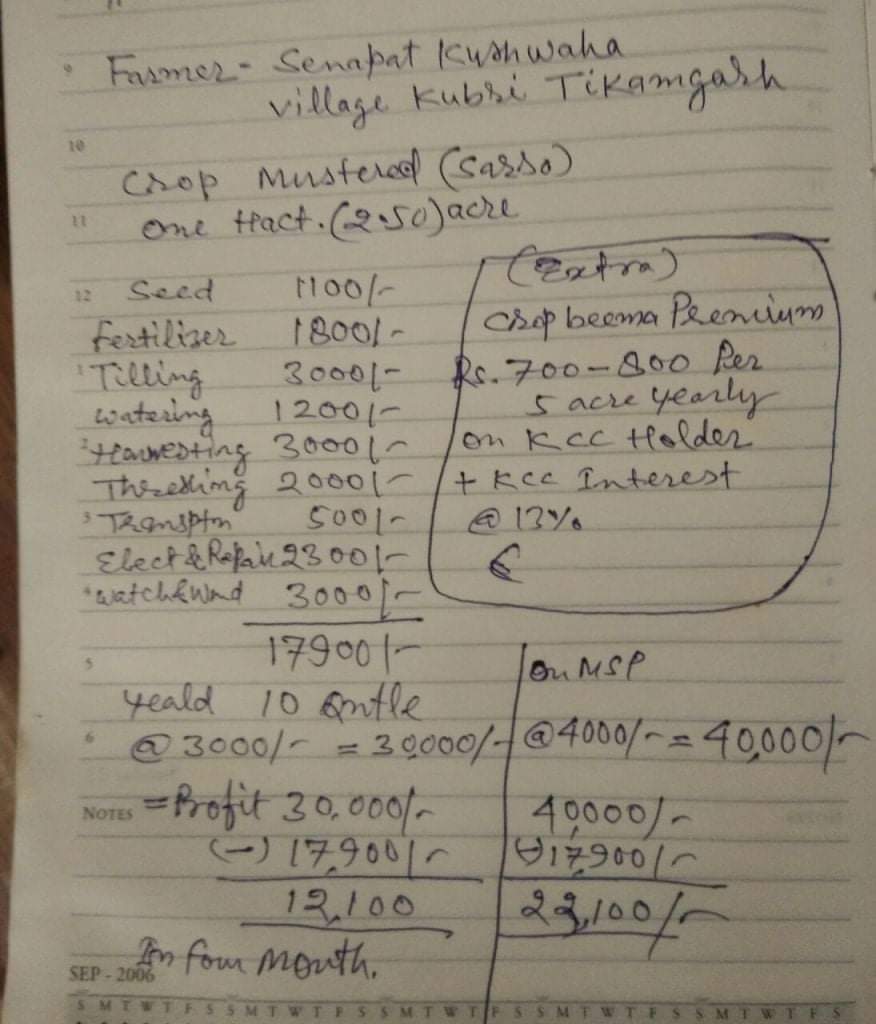 9
Farmer - Senapat Kushwaha
village Kubri Tikamgarh
10
Crop Mustered (Sarso)
11
one Hact. (2.50) acre
12 Seed 1100/-
fertilizer 1800/-
1 Tilling 3000/-
watering 1200/-
2 Harwesting 3000/-
Threshing 2000/-
3 Transptn 500/-
Elect & Repair 2300/-
4 watch & wnd 3000/-
17900/-
(Extra)
Crop beema Premium
Rs. 700-800 Per
5 acre yearly
on KCC Holder
+ KCC Interest
@ 13%
5
yeald 10 Qntle
6 @ 3000/- = 30,000/-
NOTES = Profit 30,000/-
(-) 17,900/-
12,100
In four month.
On MSP
@ 4000/- = 40,000/-
40,000/-
(-) 17,900/-
22,100/-
SEP - 2006
S M T W T F S S M T W T F S S M T W T F S S M T W T F S S M T W T F S